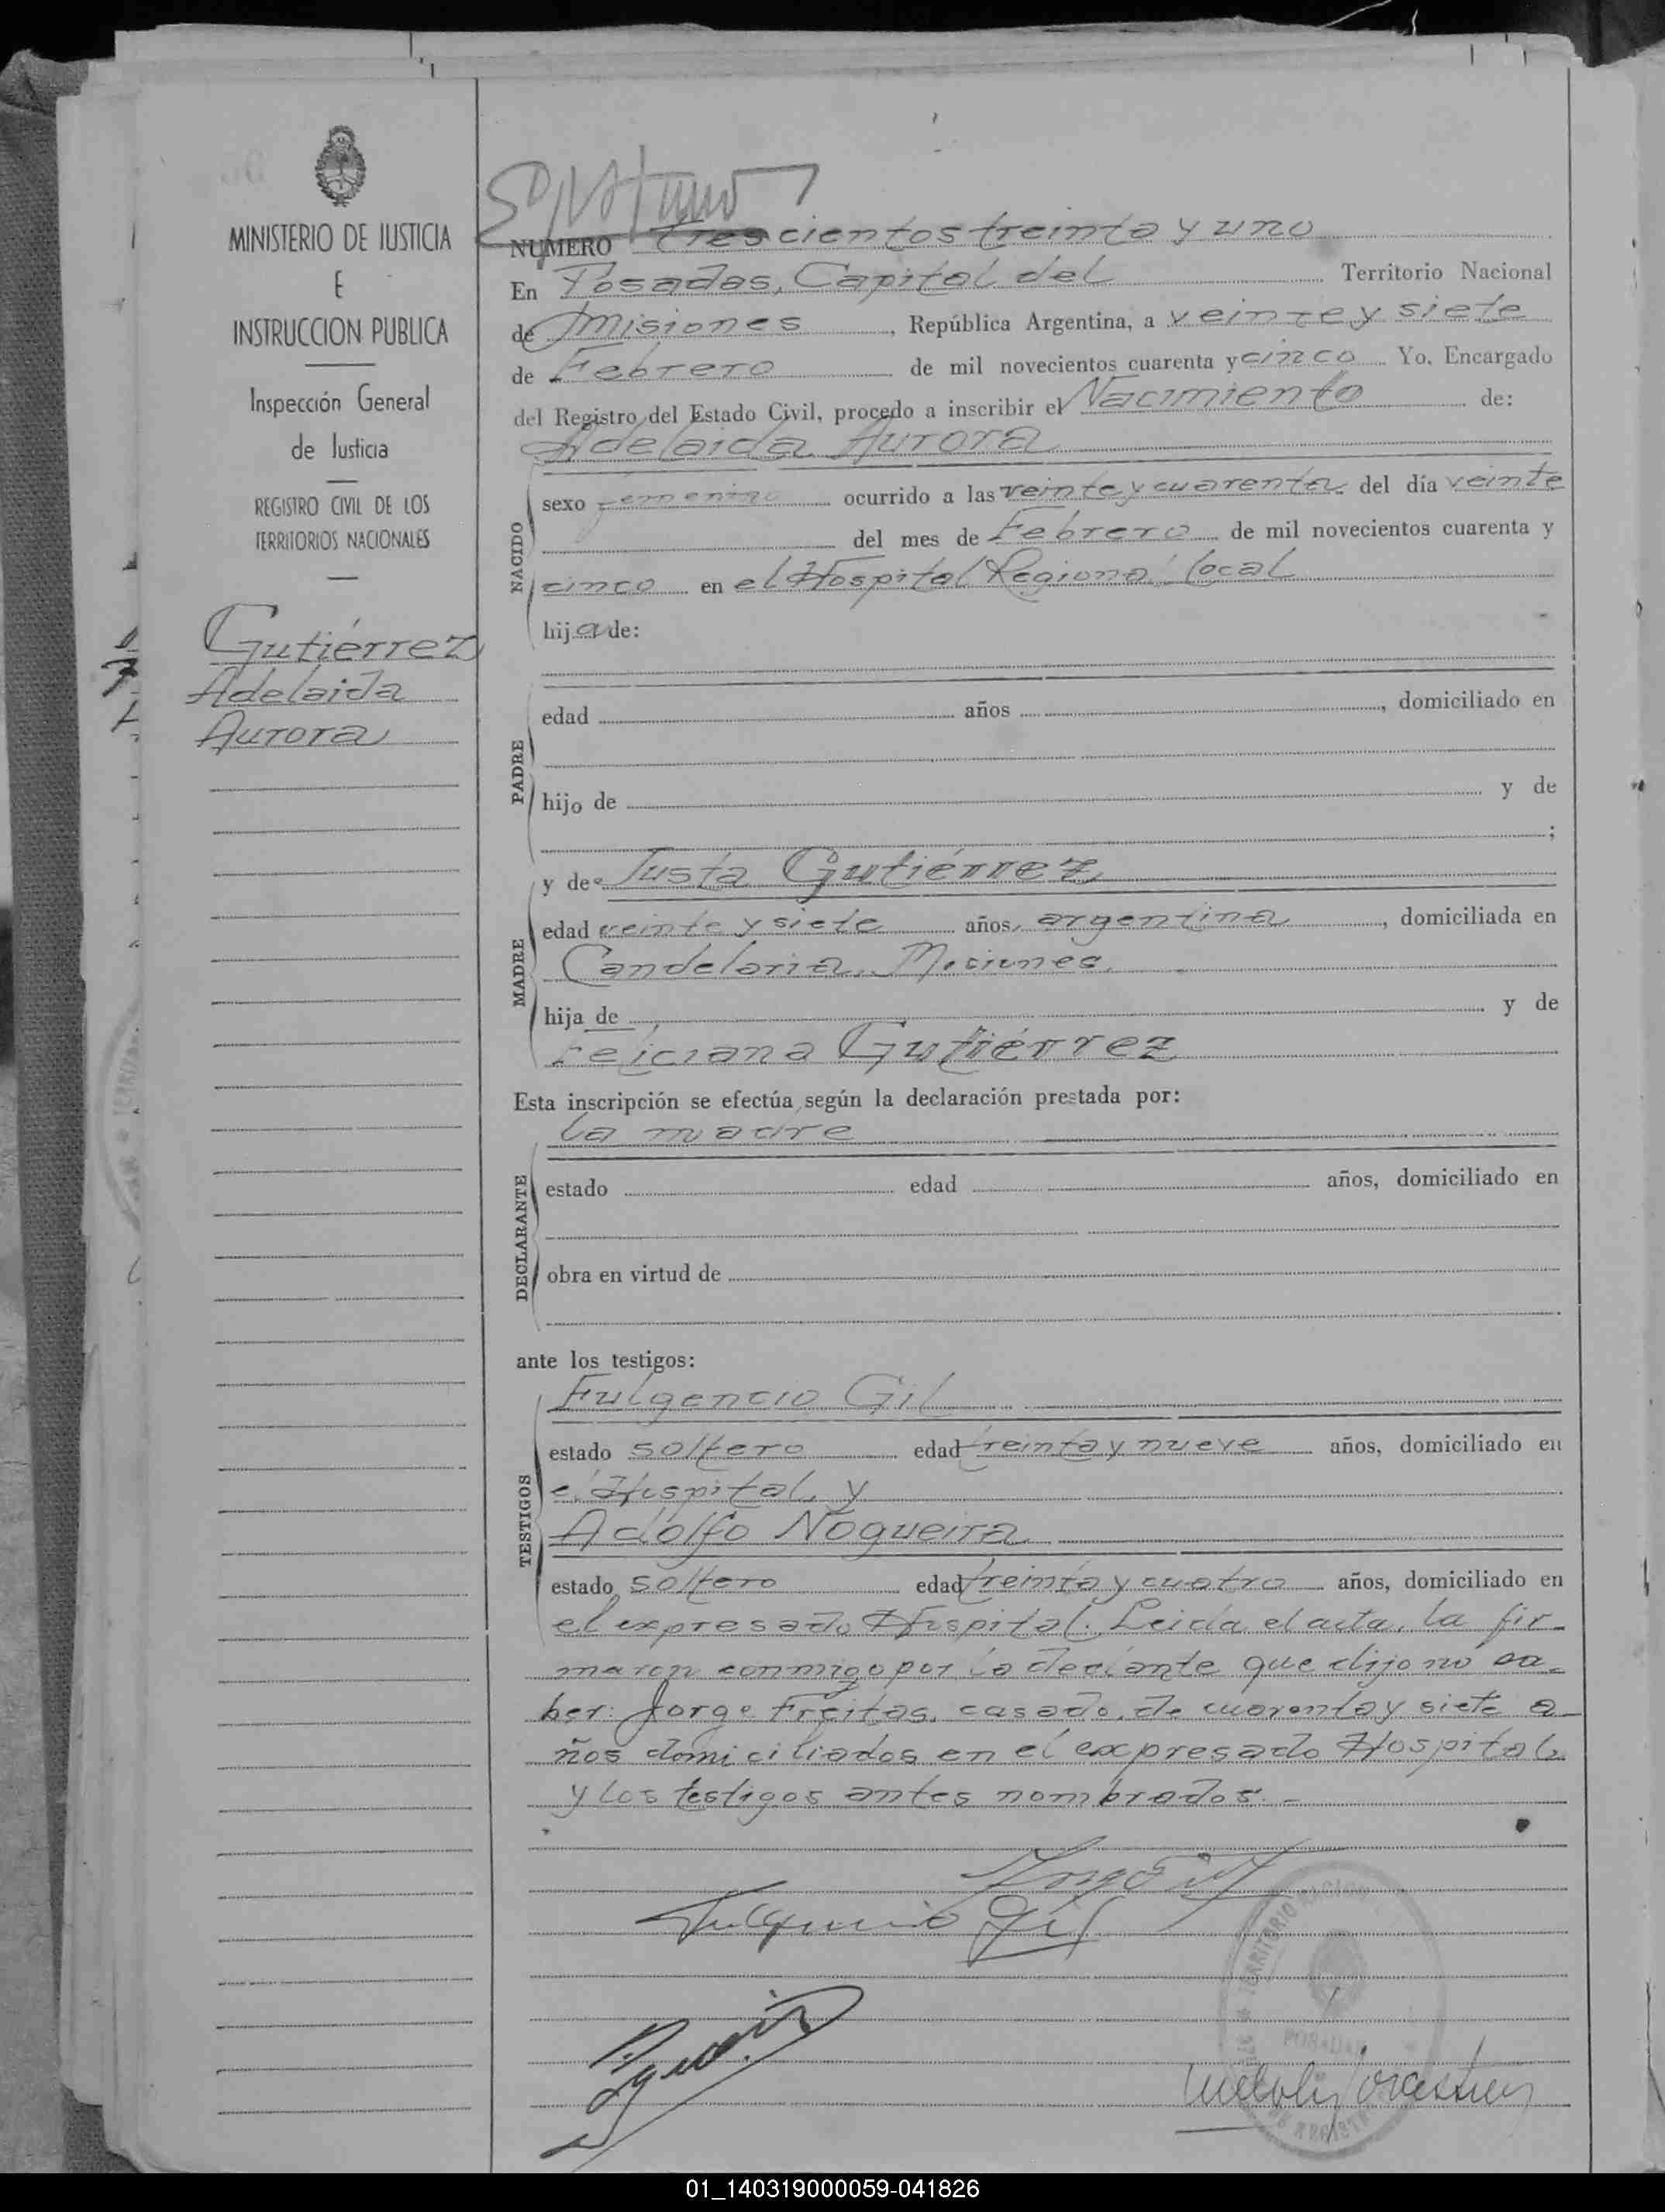 MINISTERIO DE JUSTICIA
E
INSTRUCCION PUBLICA
Inspección General
de Justicia
REGISTRO CIVIL DE LOS
TERRITORIOS NACIONALES
Gutiérrez
Adelaida
Aurora
NUMERO Trescientos treinta y uno
En Posadas, Capital del Territorio Nacional
de Misiones, República Argentina, a veinte y siete
de Febrero de mil novecientos cuarenta y cinco Yo, Encargado
del Registro del Estado Civil, procedo a inscribir el Nacimiento de:
Adelaida Aurora
NACIDO
sexo femenino ocurrido a las veinte y cuarenta del día veinte
del mes de Febrero de mil novecientos cuarenta y
cinco en el Hospital Regional local
hija de:
PADRE
edad años, domiciliado en
hijo de y de
;
MADRE
y de Justa Gutiérrez
edad veinte y siete años, argentina, domiciliada en
Candelaria, Misiones,
hija de y de
Feliciana Gutiérrez
Esta inscripción se efectúa según la declaración prestada por:
la madre
DECLARANTE
estado edad años, domiciliado en
obra en virtud de
ante los testigos:
TESTIGOS
Fulgencio Gil
estado soltero edad treinta y nueve años, domiciliado en
el Hospital, y
Adolfo Nogueira
estado soltero edad treinta y cuatro años, domiciliado en
el expresado Hospital. Leida el acta, la fir-
maron conmigo por la declante que dijo no sa-
ber: Jorge Freitas, casado, de cuarenta y siete a-
ños domiciliados en el expresado Hospital
y los testigos antes nombrados.-
Fulgencio Gil
POSADAS
01_140319000059-041826